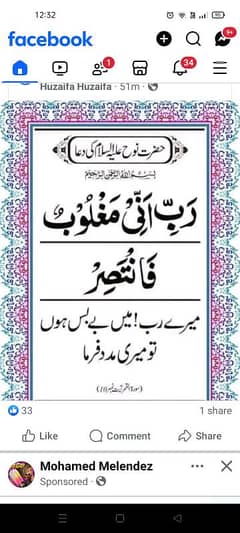 12:32
facebook
9+
1
34
Huzaifa Huzaifa · 51m ·
حضرت نوح علیہ السلام کی دعا
بِسْمِ اللهِ الرَّحْمٰنِ الرَّحِيْمِ
رَبِّ اَنِّیْ مَغْلُوْبٌ
فَانْتَصِرْ
میرے رب! میں بے بس ہوں
تو میری مدد فرما
33
1 share
Like
Comment
Share
Mohamed Melendez
Sponsored ·